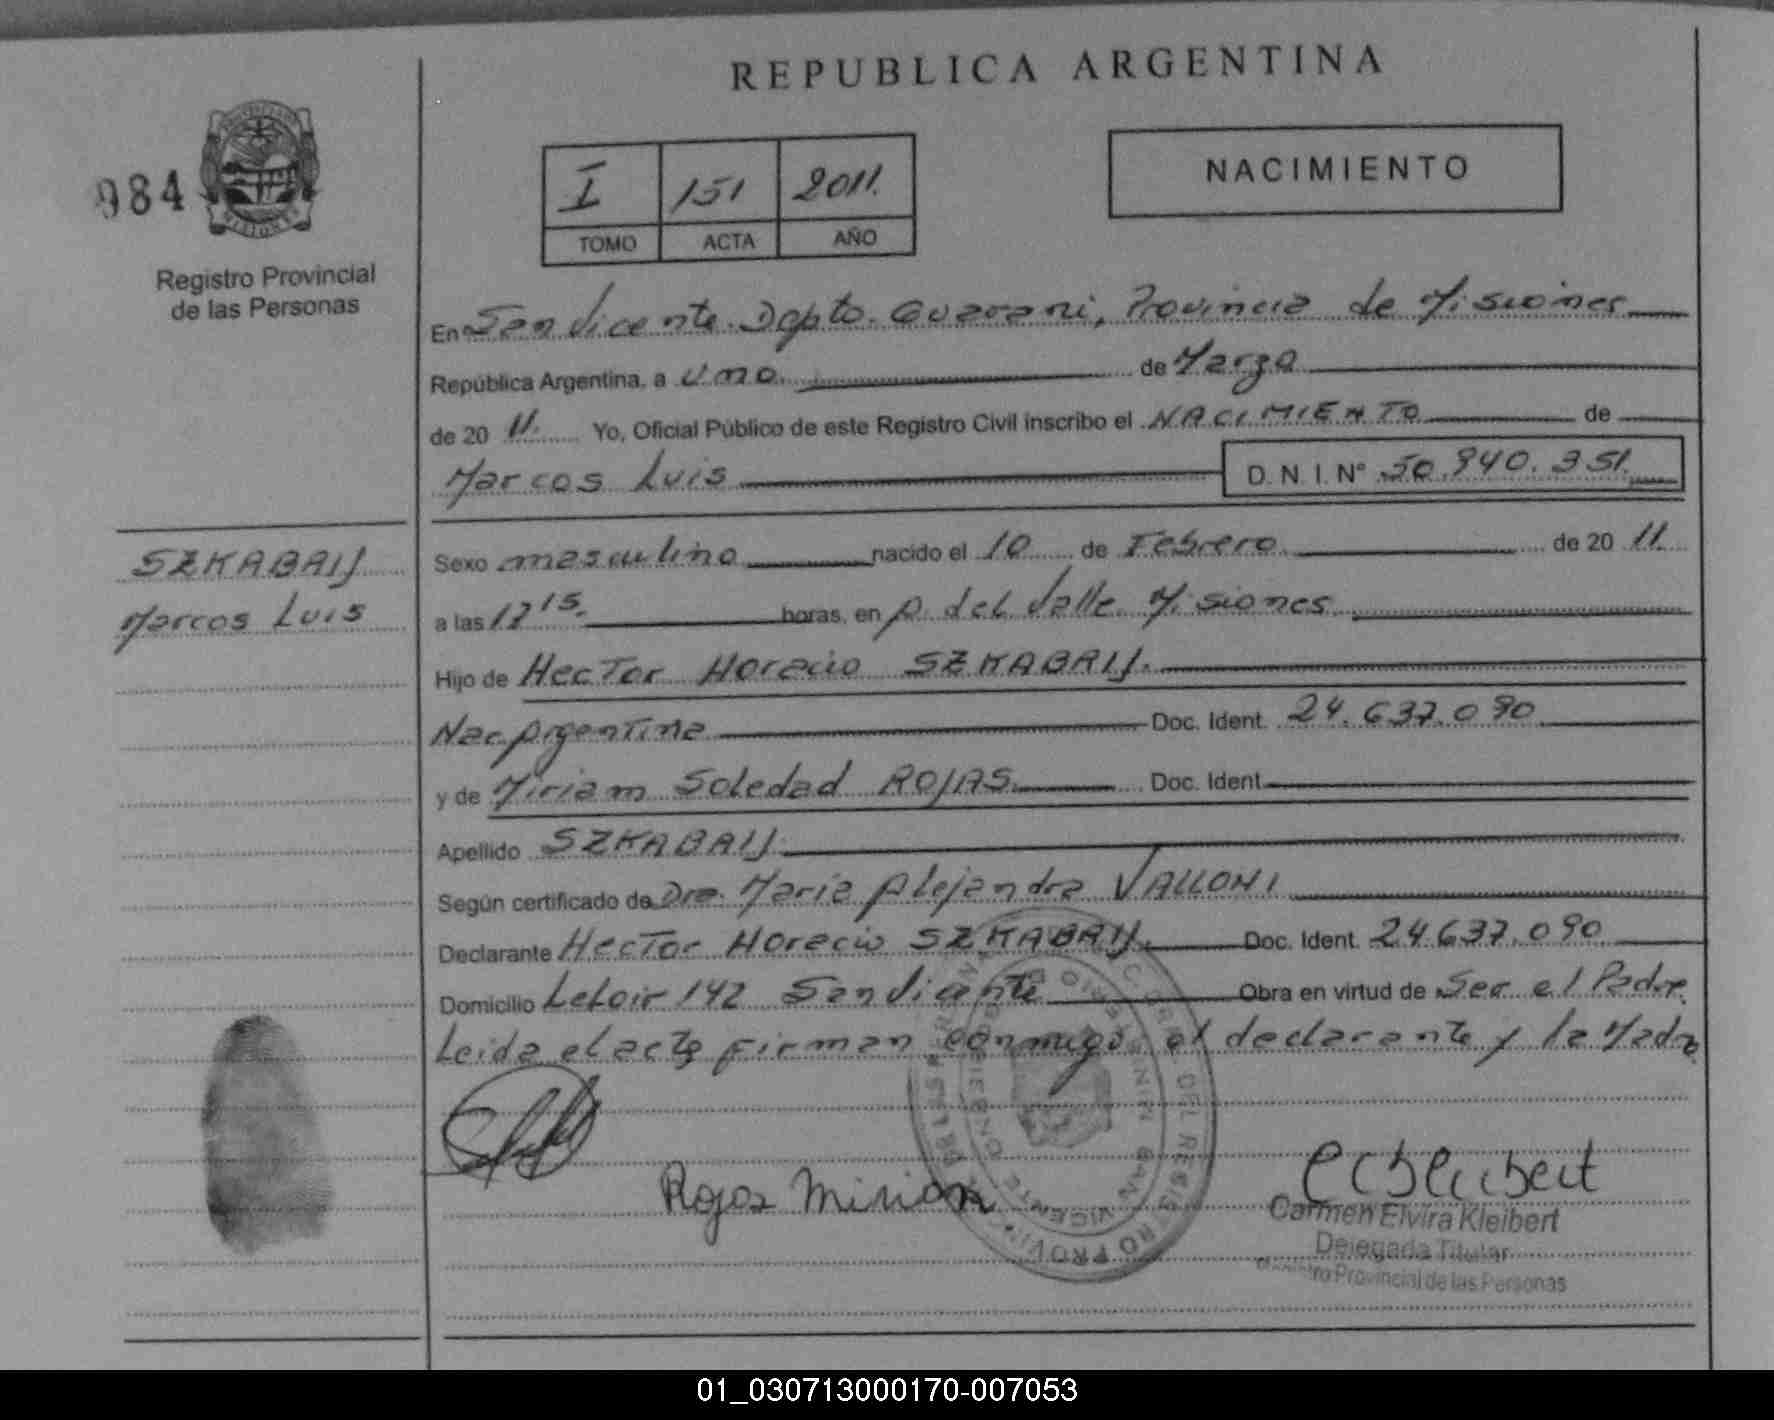 REPUBLICA ARGENTINA
984
MISIONES
Registro Provincial
de las Personas
I 151 2011.
TOMO ACTA AÑO
NACIMIENTO
En San Vicente Dpto. Guarani, Provincia de Misiones
República Argentina, a uno de Marzo
de 20 11. Yo, Oficial Público de este Registro Civil inscribo el NACIMIENTO de
Marcos Luis D.N.I.Nº 50.940.351.
SZKABAIJ
Marcos Luis
Sexo masculino nacido el 10 de Febrero de 20 11.
a las 12 15. horas, en A. del Valle Misiones
Hijo de Hector Horacio SZKABAIJ.
Nac Argentina Doc. Ident. 24.637.090
y de Miriam Soledad ROJAS Doc. Ident.
Apellido SZKABAIJ.
Según certificado de Dra. Maria Alejandra VALLONI
Declarante Hector Horacio SZKABAIJ. Doc. Ident. 24.637.090
Domicilio Leloir 142 San Vicente Obra en virtud de Ser el Padre
Leida el acta firman conmigo el declarante y la Madre
Rojas Mirian
DEL REGISTRO PROVINCIAL
SAN VICENTE MISIONES
Carmen Elvira Kleibert
Delegada Titular
Provincial de las Personas
01_030713000170-007053